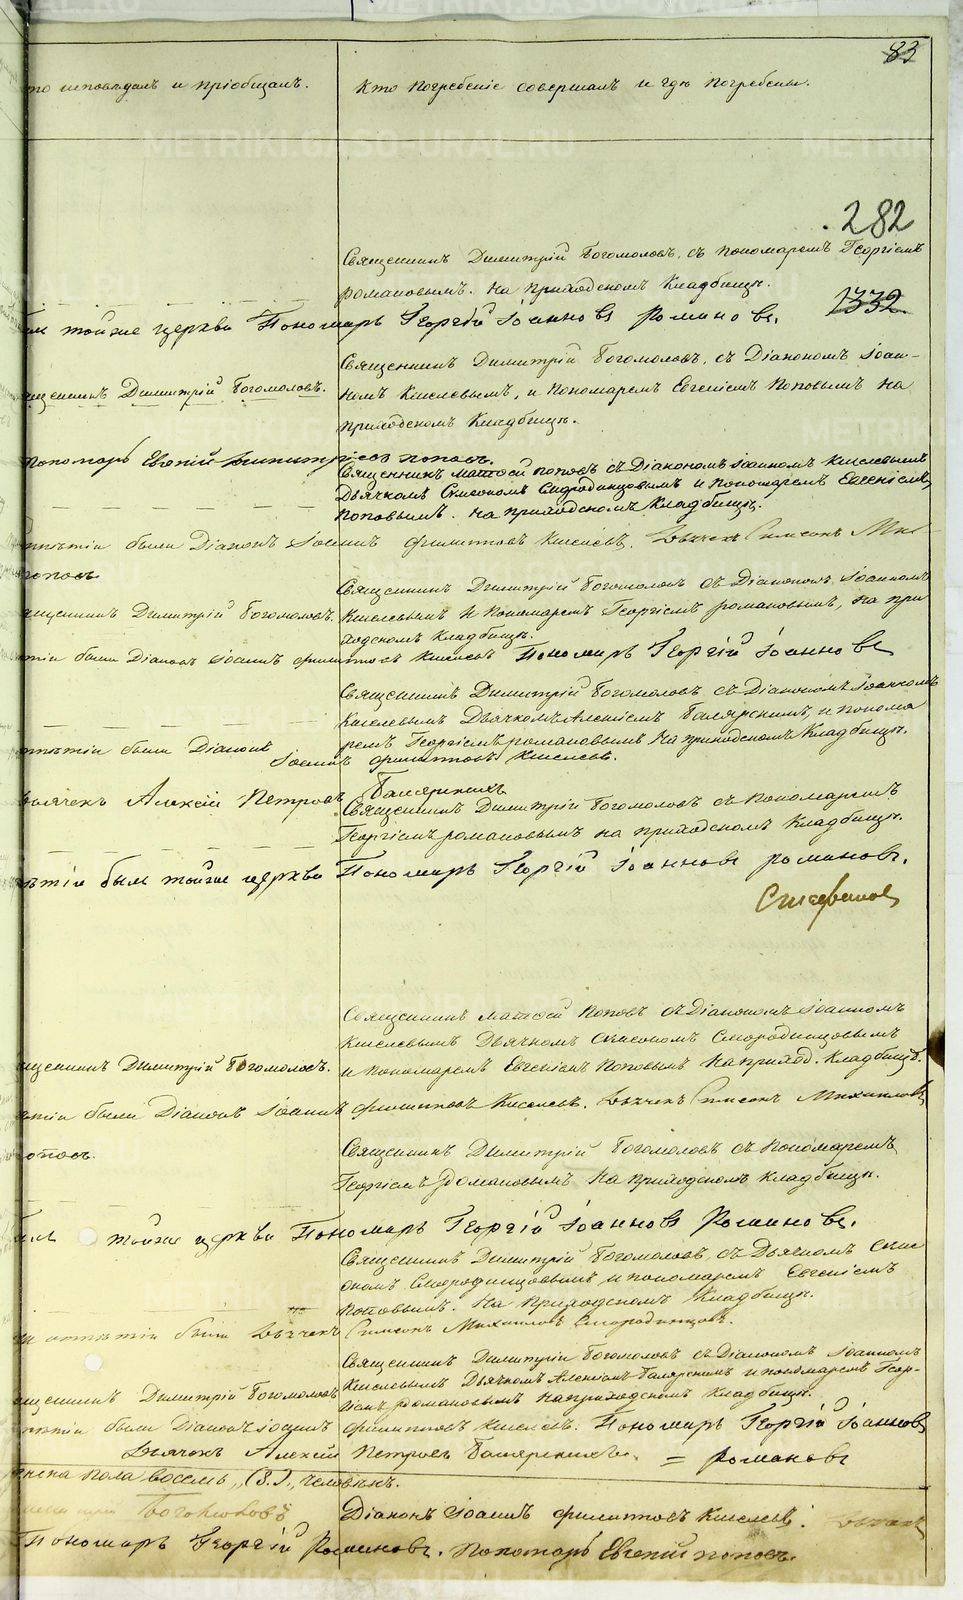 83
то исповѣдалъ и пріобщалъ. Кто погребеніе совершалъ и гдѣ погребены.
282
Священникъ Димитрій Богомоловъ, съ пономаремъ Георгіемъ
Романовымъ. На приходскомъ Кладбищѣ.
1332
тойже церкви Пономарь Георгій Іоанновъ Романовъ.
Священникъ Димитрій Богомоловъ, съ Діакономъ Іоан-
номъ Киселевымъ, и Пономаремъ Евгеніемъ Поповымъ на
приходскомъ Кладбищѣ.
щенникъ Димитрій Богомоловъ.
пономарь Евгеній Димитріевъ Поповъ.
Священникъ Матѳей Поповъ съ Діакономъ Іоанномъ Киселевымъ
Дьячкомъ Симеономъ Смородинцовымъ и пономаремъ Евгеніемъ
Поповымъ. на приходскомъ Кладбищѣ.
отпѣтіи были Діаконъ Іоаннъ Филиптовъ Киселевъ. Дьячекъ Симеонъ Ми
поповъ
Священникъ Димитрій Богомоловъ съ Діакономъ Іоанномъ
Киселевымъ и Пономаремъ Георгіемъ Романовымъ, на при
ходскомъ Кладбищѣ.
ященникъ Димитрій Богомоловъ.
тіи были Діаконъ Іоаннъ Филиптовъ Киселевъ Пономарь Георгій Іоанновъ
Священникъ Димитрій Богомоловъ съ Діакономъ Іоанномъ
Киселевымъ Дьячкомъ Алексіемъ Балярскимъ, и понома
ремъ Георгіемъ Романовымъ на приходскомъ Кладбищѣ.
отпѣтіи были Діаконъ Іоаннъ Филиптовъ Киселевъ.
Дьячекъ Алексій Петровъ
Священникъ Димитрій Богомоловъ съ Пономаремъ
Георгіемъ Романовымъ на приходскомъ Кладбищѣ.
ѣтіи былъ тойже церкви Пономарь Георгій Іоанновъ Романовъ.
Священникъ Матѳей Поповъ съ Діакономъ Іоанномъ
Киселевымъ Дьячкомъ Симеономъ Смородинцовымъ
и пономаремъ Евгеніемъ Поповымъ на приход. Кладбищѣ.
щенникъ Димитрій Богомоловъ.
ѣтіи были Діаконъ Іоаннъ Филиптовъ Киселевъ. Дьячекъ Симеонъ Михаиловъ
поповъ.
Священникъ Димитрій Богомоловъ съ Пономаремъ
Георгіемъ Романовымъ на приходскомъ кладбищѣ.
тойже церкви Пономарь Георгій Іоанновъ Романовъ.
Священникъ Димитрій Богомоловъ, съ Дьячкомъ Симе
ономъ Смородинцовымъ и пономаремъ Евгеніемъ
Поповымъ. На Приходскомъ Кладбищѣ.
отпѣтіи были Дьячекъ Симеонъ Михаиловъ Смородинцовъ.
Священникъ Димитрій Богомоловъ съ Діакономъ Іоанномъ
Киселевымъ Дьячкомъ Алексіемъ Балярскимъ и пономаремъ Геор-
гіемъ Романовымъ на приходскомъ Кладбищѣ.
щенникъ Димитрій Богомоловъ
пѣтіи были Діаконъ Іоаннъ Филиптовъ Киселевъ. Пономарь Георгій Іоанновъ
Дьячекъ Алексій Петровъ = Романовъ
женска пола восемь, (8.), человѣкъ.
Богомоловъ Діаконъ Іоаннъ Филиптовъ Киселевъ. Дьячекъ
Пономарь Георгій Романовъ. Пономарь Евгеній Поповъ.
METRIKI.GASO-URAL.RU